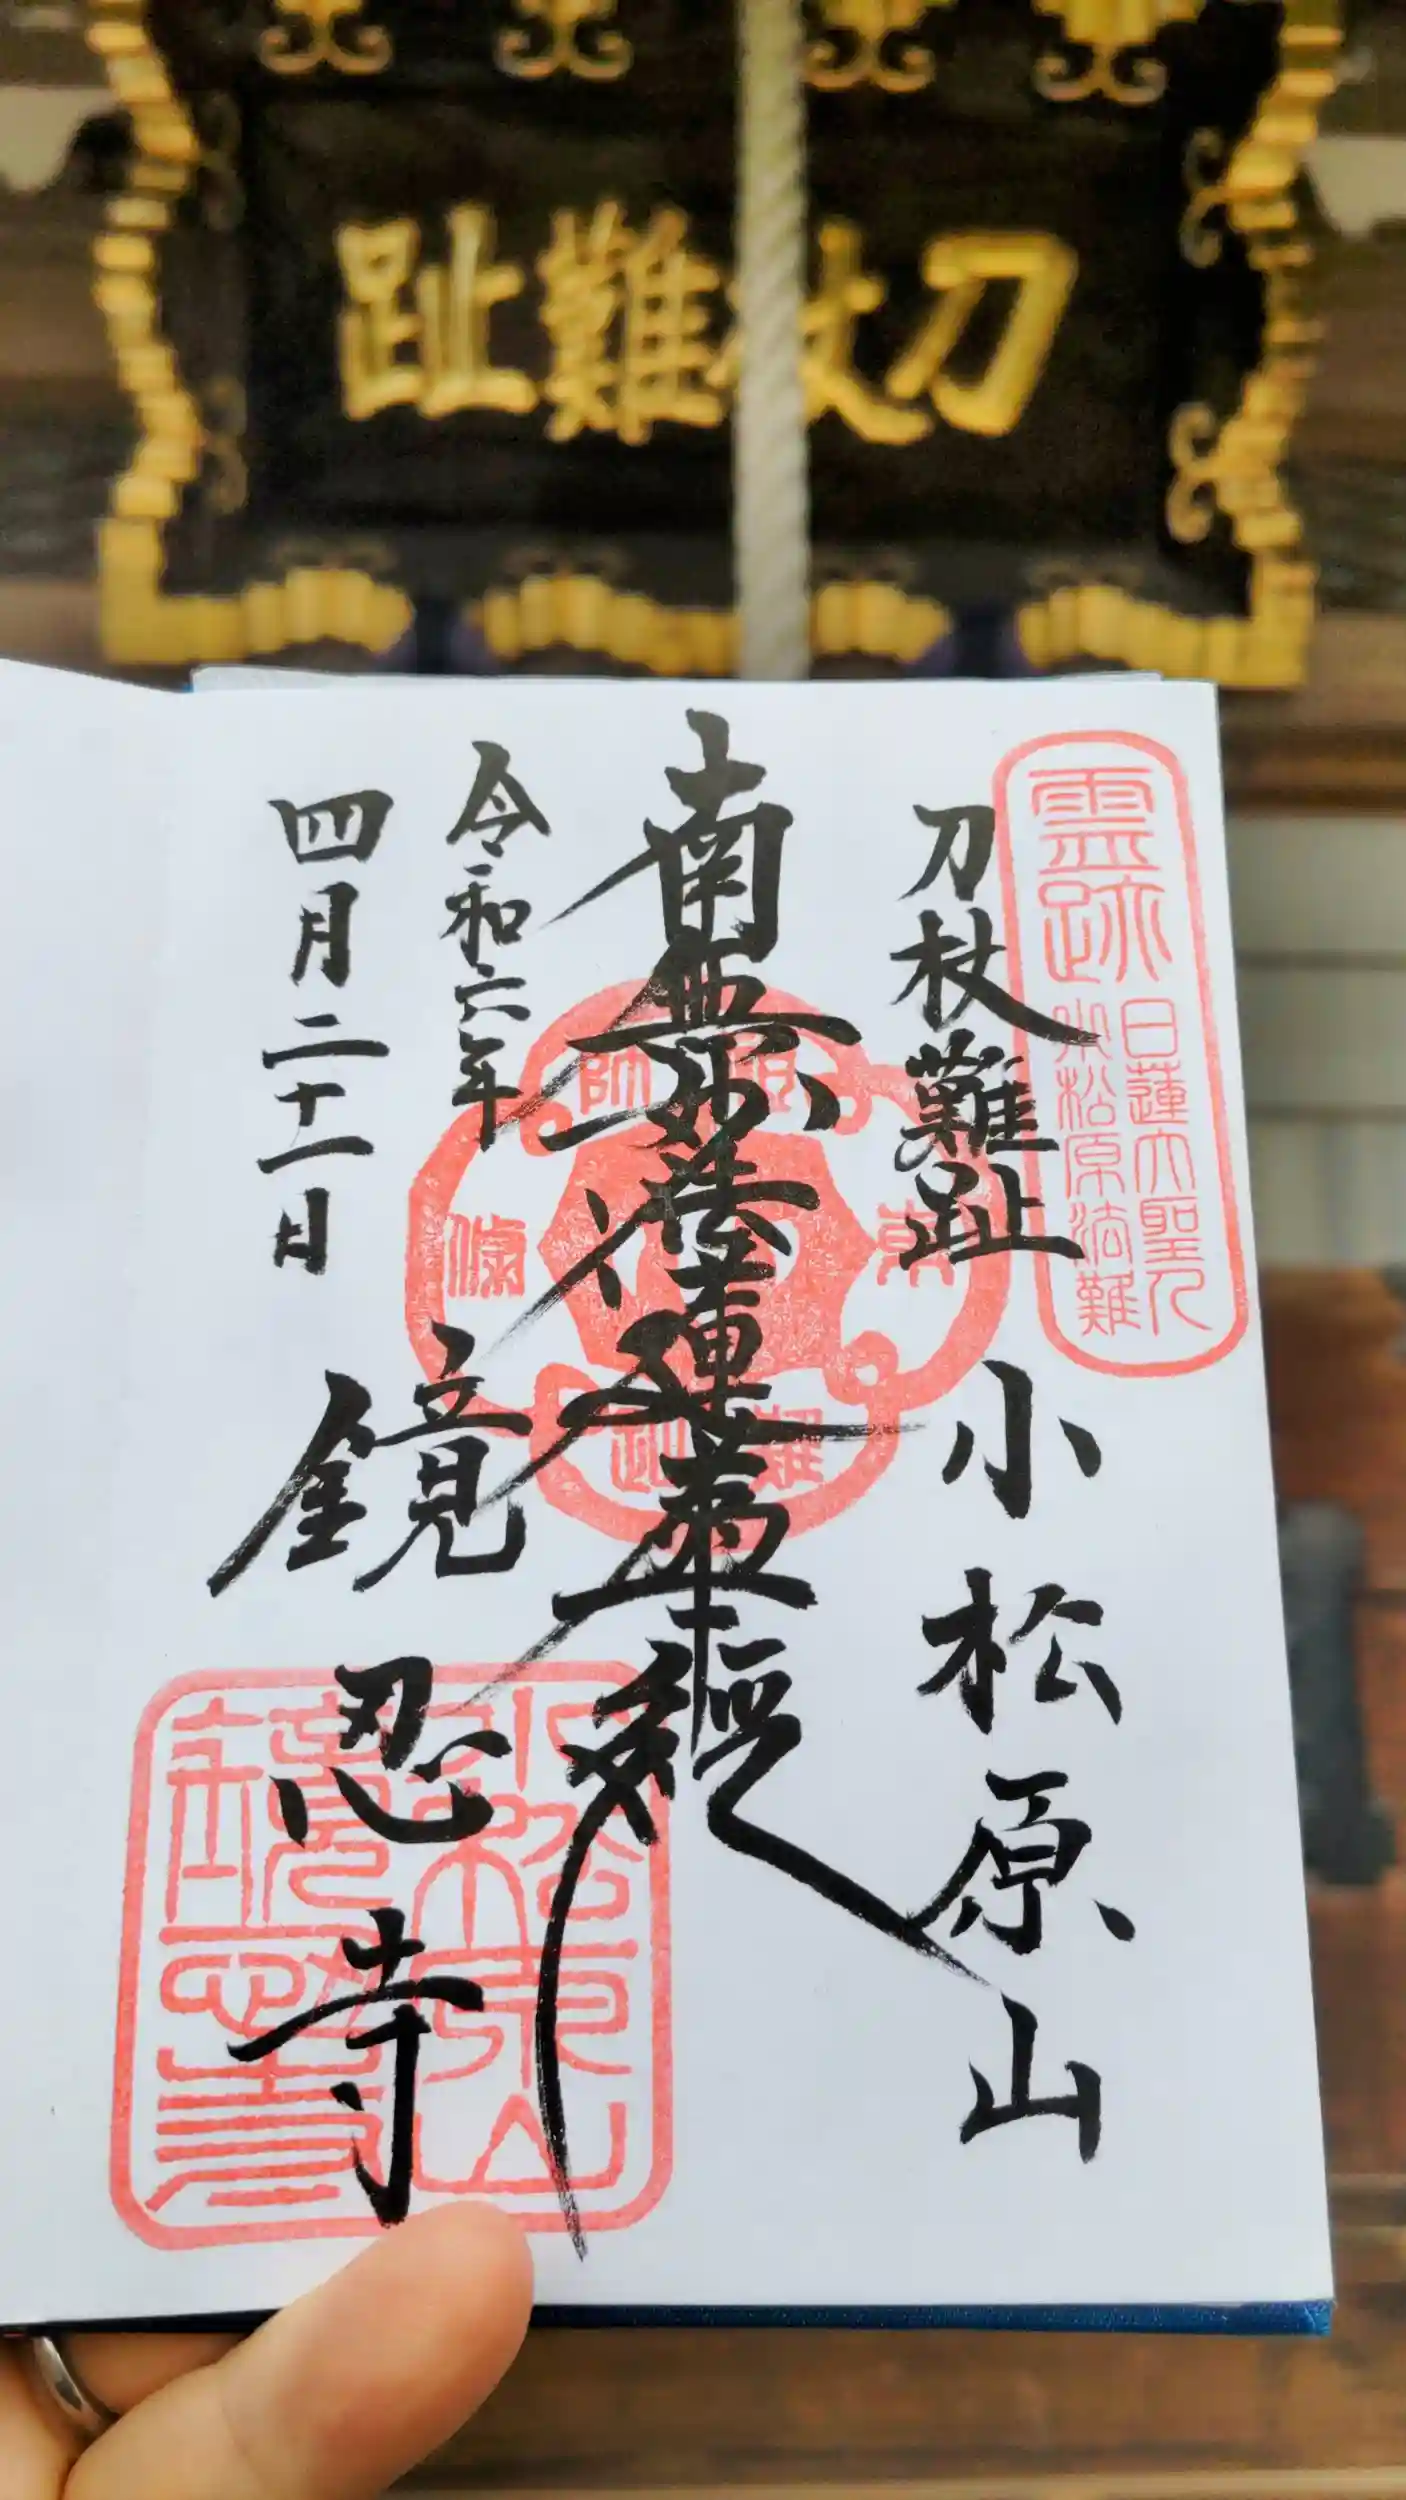 刀杖難趾
霊跡
日蓮大聖人
小松原法難
刀杖難趾
小松原山
南無妙法蓮華経
令和六年
四月二十一日
鏡忍寺
小松原山
鏡忍寺